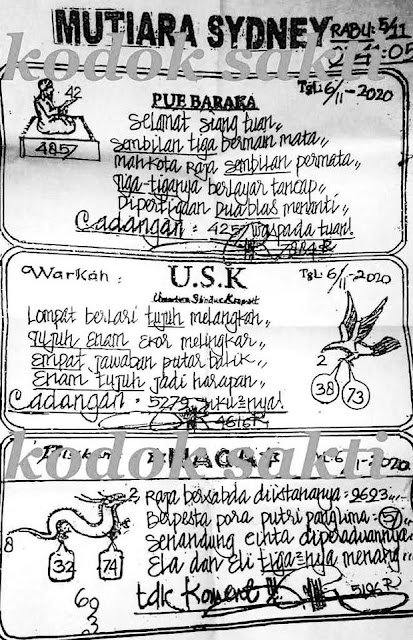 MUTIARA SYDNEY
RABU: 5/11
kodok sakti
PUE BARAKA
TGL: 6/11-2020
42
485
Selamat siang tuan,,
Sambilan tiga bermain mata,,
Mahkota Raja sambilan permata,,
tiga-tiganya berlayar tancap,,
Dipertigaan duablas menanti,,
Cadangan: 425 waspada tuan!
Warkah:
U.S.K
TGL: 6/11-2020
Lompat berlari tujuh melangkah,,
Tujuh Enam Ekor melingkar,,
Empat jawaban putar balik,,
Enam tujuh jadi harapan,,
Cadangan: 5279
4615 R
2
38 73
kodok sakti
11-2020
2
8
32 74
69
3
Raja bersabda diistananya: 9693
Berpesta pora putri panglima: 57
Senandung cinta diperaduannya
Ela dan Eli tiganya menang
tdk Koment!!!
5196 R